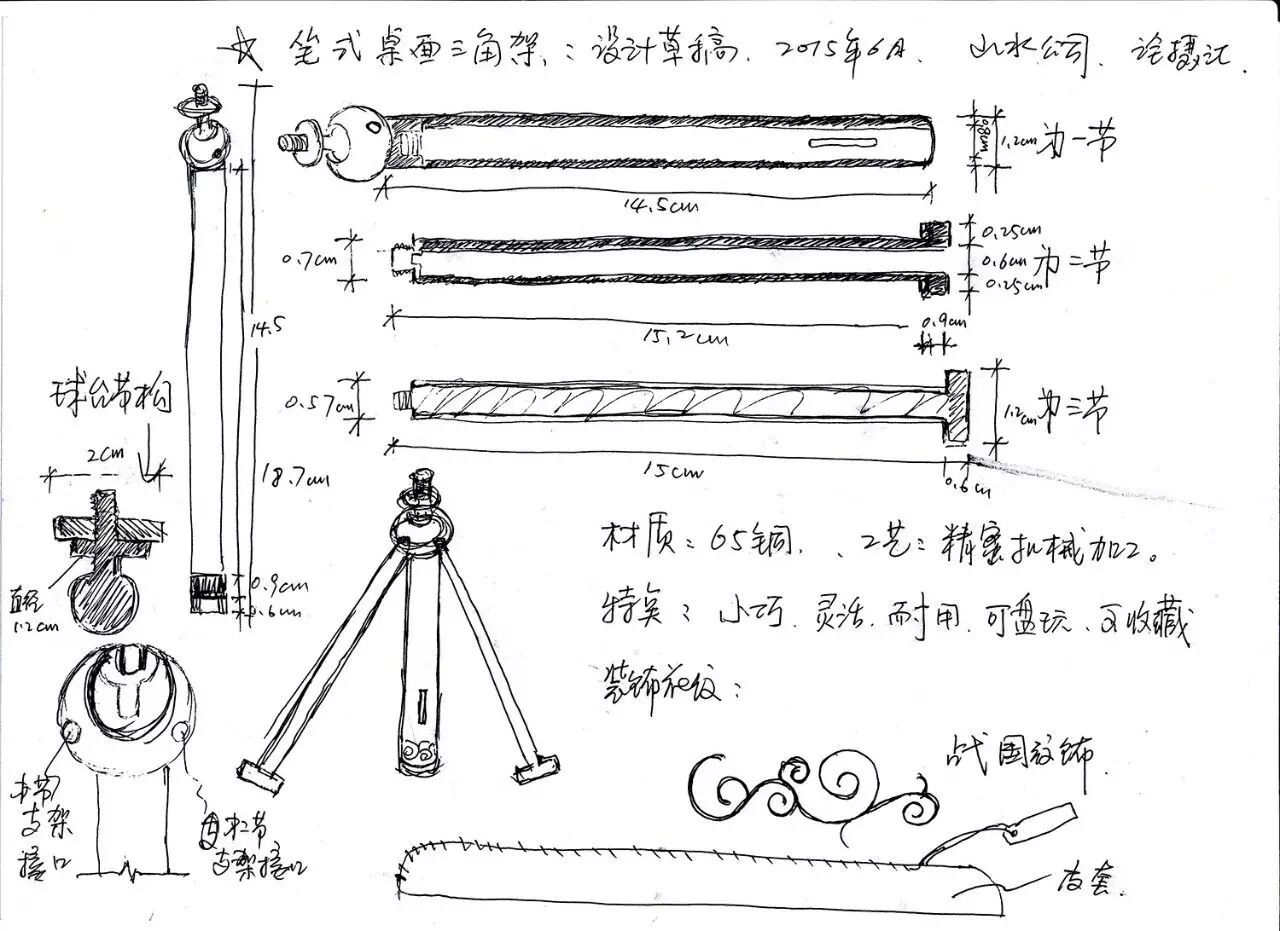 笔式桌面三角架：设计草稿. 2015年6月. 山水公司.
0.8cm
1.2cm 为一节
14.5cm
0.25cm
0.7cm
0.6cm 为二节
0.25cm
15.2cm
0.9cm
14.5
球台带松
0.57cm
1.2cm 为三节
2cm
18.7cm
15cm
0.6cm
材质：65铜. 工艺：精密机械加工。
0.9cm
直径
1.2cm
0.6cm
特点：小巧.灵活.而耐用.可盘玩.可收藏
装饰花纹：
战国纹饰.
支架
接口
二节
支架接口
皮套.